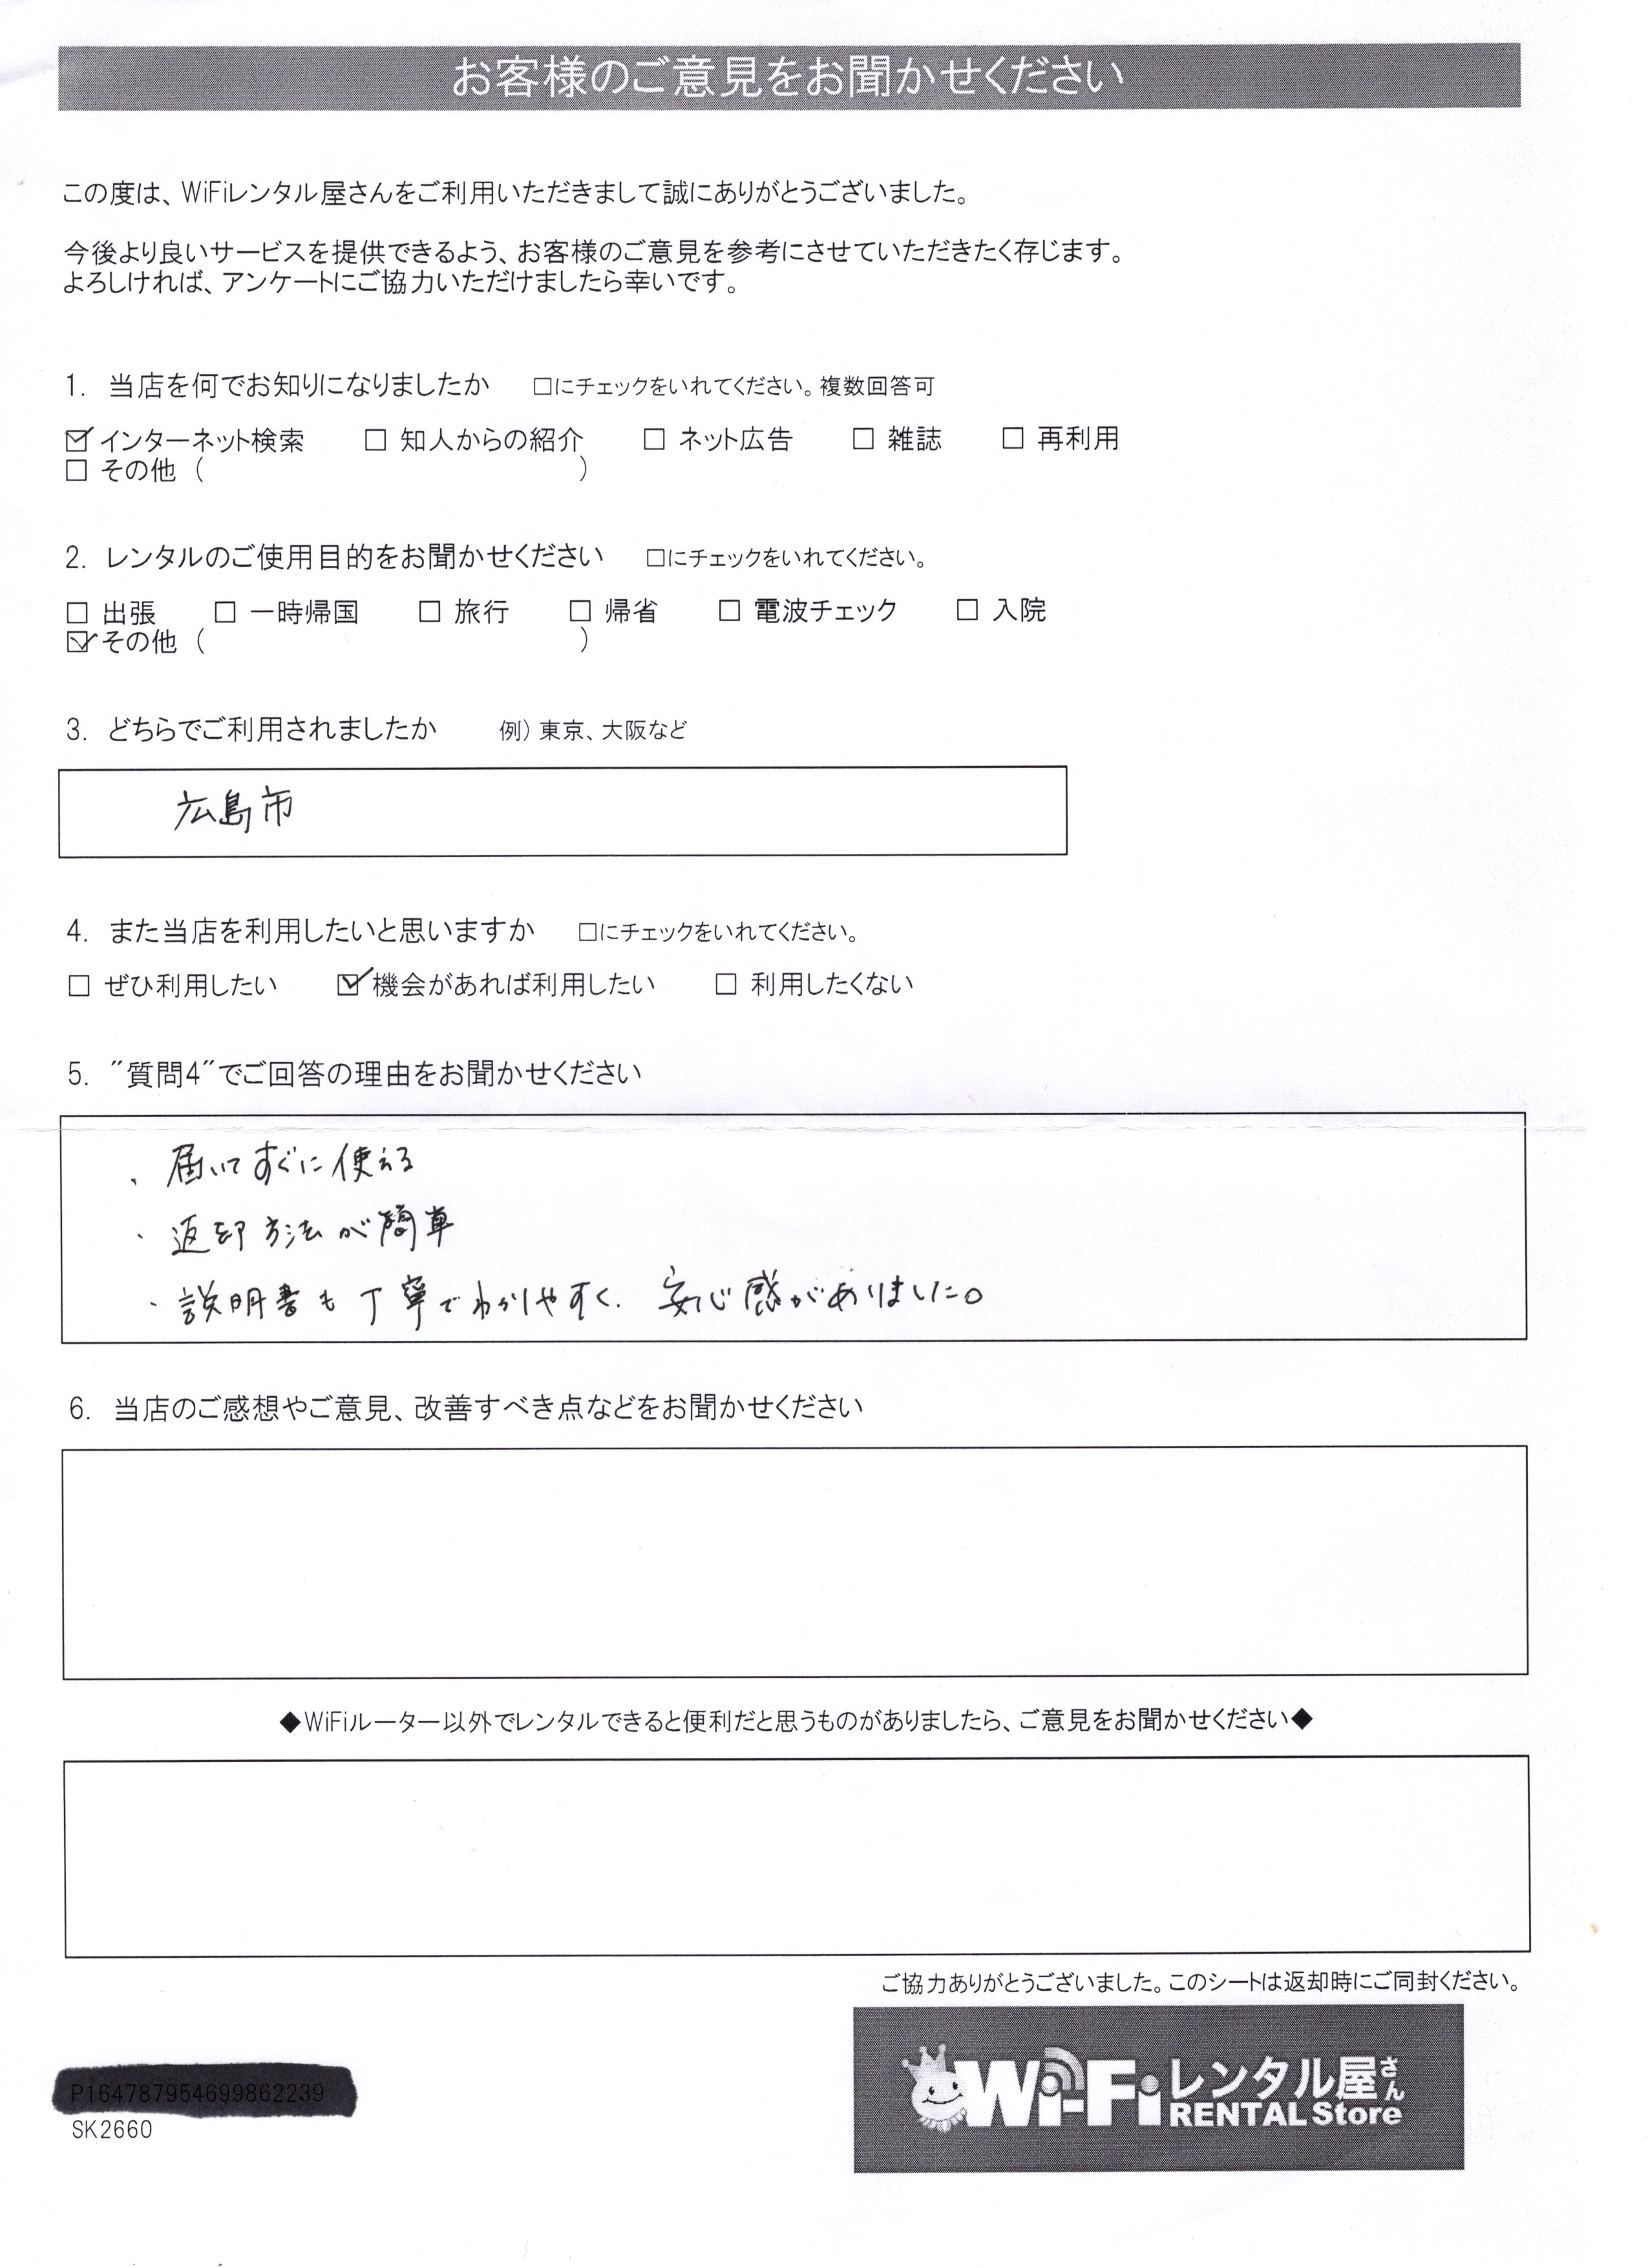 お客様のご意見をお聞かせください
この度は、WiFiレンタル屋さんをご利用いただきまして誠にありがとうございました。
今後より良いサービスを提供できるよう、お客様のご意見を参考にさせていただきたく存じます。
よろしければ、アンケートにご協力いただけましたら幸いです。
1. 当店を何でお知りになりましたか □にチェックをいれてください。複数回答可
☑ インターネット検索 □ 知人からの紹介 □ ネット広告 □ 雑誌 □ 再利用
□ その他 ( )
2. レンタルのご使用目的をお聞かせください □にチェックをいれてください。
□ 出張 □ 一時帰国 □ 旅行 □ 帰省 □ 電波チェック □ 入院
☑ その他 ( )
3. どちらでご利用されましたか 例) 東京、大阪など
広島市
4. また当店を利用したいと思いますか □にチェックをいれてください。
□ ぜひ利用したい ☑ 機会があれば利用したい □ 利用したくない
5. ″質問4″でご回答の理由をお聞かせください
・届いてすぐに使える
・返却方法が簡単
・説明書も丁寧でわかりやすく、安心感がありました。
6. 当店のご感想やご意見、改善すべき点などをお聞かせください
◆WiFiルーター以外でレンタルできると便利だと思うものがありましたら、ご意見をお聞かせください◆
ご協力ありがとうございました。このシートは返却時にご同封ください。
Wi-Fiレンタル屋さん
RENTAL Store
SK2660